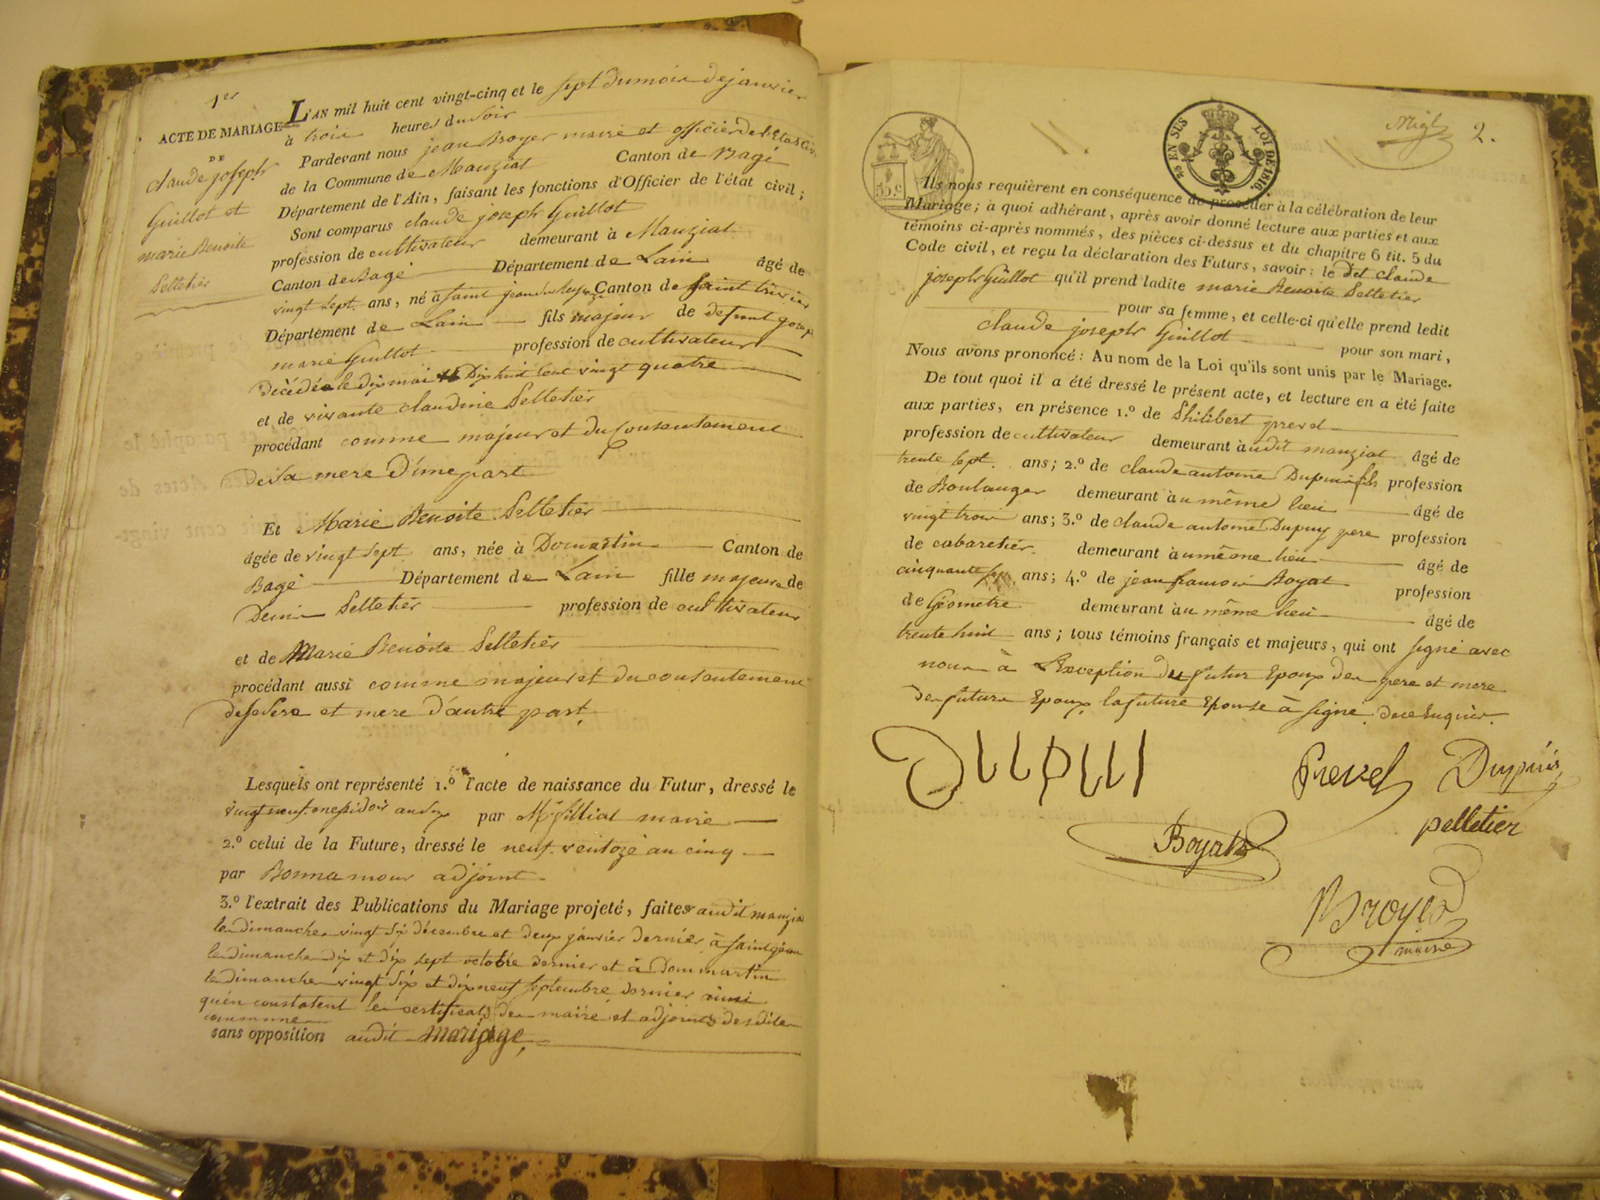 1er
ACTE DE MARIAGE
DE
claude joseph
Guillot et
marie Benoite
Pelletier
L'AN mil huit cent vingt-cinq et le sept du mois de janvier
à trois heures du soir
Pardevant nous jean Broyer maire et officier de l'Etat Civil
de la Commune de Manziat Canton de Bagé
Département de l'Ain, faisant les fonctions d'Officier de l'état civil;
Sont comparus claude joseph Guillot
profession de cultivateur demeurant à Manziat
Canton de Bagé Département de Lain âgé de
vingt sept ans, né à saint jean Canton de saint trivier
Département de Lain fils majeur de defunt joseph
marie Guillot profession de cultivateur
décédé le dix mai Dix huit cent vingt quatre
et de vivante claudine Pelletier
procédant comme majeur et du Consentement
de sa mere D'une part
Et Marie Benoite Pelletier
âgée de vingt sept ans, née à Domartin Canton de
Bagé Département de Lain fille majeure de
Denis Pelletier profession de cultivateur
et de Marie Benoite Pelletier
procédant aussi comme majeur et du consentement
de ses Pere et mere d'autre part.
Lesquels ont représenté 1.º l'acte de naissance du Futur, dressé le
vingt neuf messidor an par Mr filliat maire
2.º celui de la Future, dressé le neuf ventoze an cinq
par Bonnamour adjoint
3.º l'extrait des Publications du Mariage projeté, faites audit manziat
les dimanches vingt six décembre et deux janvier dernier à saint jean
les dimanches dix et dix sept octobre dernier et à Dommartin
les dimanches vingt six et dix neuf septembre dernier ainsi
qu'en constatent les certificats des maire et adjoints desdites
commune
sans opposition audit mariage,
25 EN SUS LOI DE 1816.
2.
Ils nous requièrent en conséquence de procéder à la célébration de leur
Mariage; à quoi adhérant, après avoir donné lecture aux parties et aux
témoins ci-après nommés, des pièces ci-dessus et du chapitre 6 tit. 5 du
Code civil, et reçu la déclaration des Futurs, savoir: le dit claude
joseph Guillot qu'il prend ladite marie Benoite Pelletier
pour sa femme, et celle-ci qu'elle prend ledit
claude joseph Guillot pour son mari,
Nous avons prononcé: Au nom de la Loi qu'ils sont unis par le Mariage.
De tout quoi il a été dressé le présent acte, et lecture en a été faite
aux parties, en présence 1.º de Philibert prevel
profession de cultivateur demeurant audit manziat âgé de
trente sept ans; 2.º de claude antoine Dupuis fils profession
de Boulanger demeurant au même lieu âgé de
vingt trois ans; 3.º de claude antoine Dupuy pere profession
de cabaretier demeurant au même lieu âgé de
cinquante ans; 4.º de jean francois Boyat profession
de Géometre demeurant au même lieu âgé de
trente huit ans; tous témoins français et majeurs, qui ont signé avec
nous à L'Exception du futur Epoux des pere et mere
des futurs Epoux, la future Epouse à signé de ce Enquis.
DUPUI
Prevel
Dupuis
pelletier
Boyat
Broyer
maire